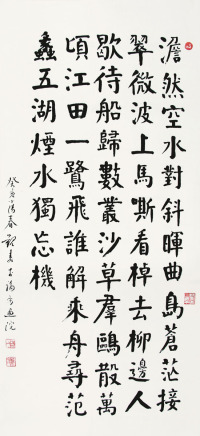 澹然空水對斜暉曲島蒼茫接
翠微波上馬嘶看棹去柳邊人
歇待船歸數叢沙草羣鷗散萬
頃江田一鷺飛誰解來舟尋范
蠡五湖煙水獨忘機